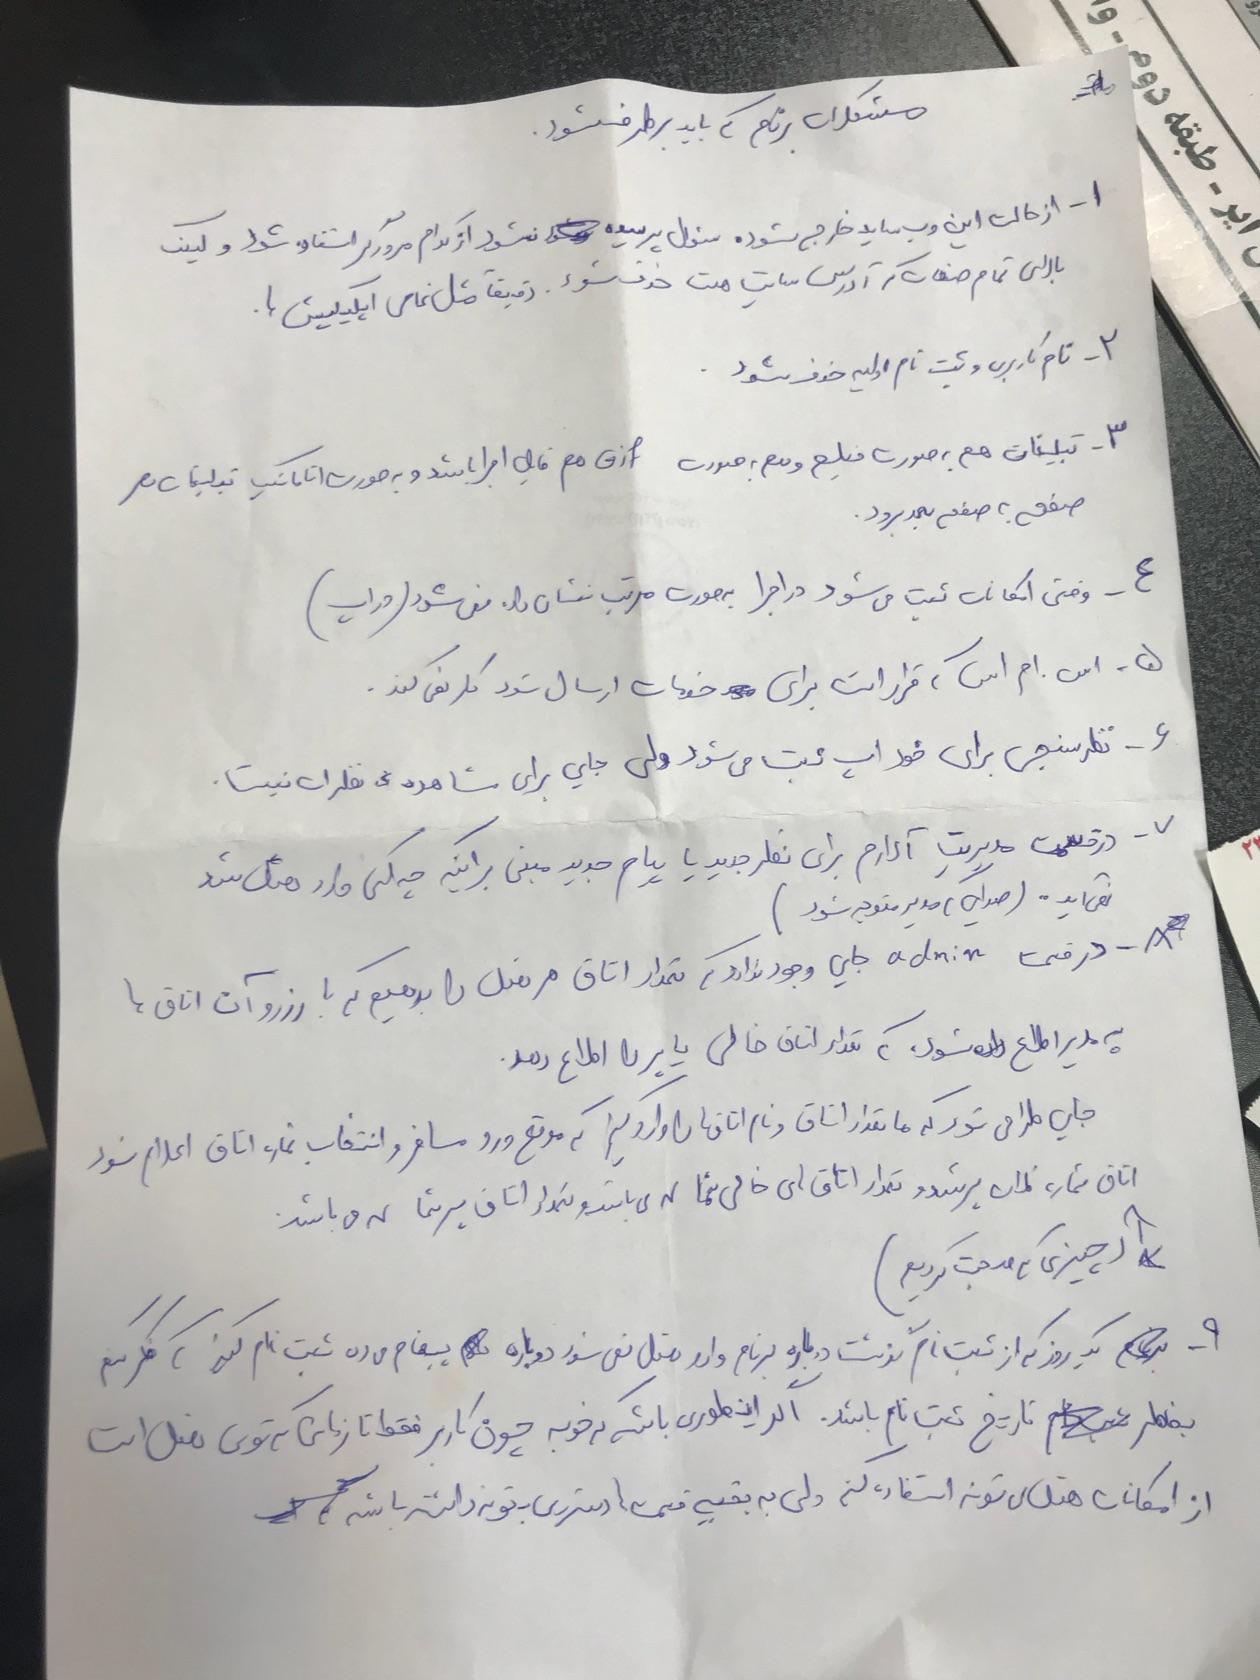 مشکلات برنامه که باید برطرف شود.
۱- از حالت این وب ساید خارج بشود. سئوال پرسیده نشود از کدام مرورگر استفاده شود و لینک
بالای تمام صفحات که آدرس سایت هست حذف شود. دقیقاً مثل تمامی اپلیکیشن ها.
۲- نام کاربری و ثبت نام اولیه حذف شود.
۳- تبلیغات هم به صورت فیلم و هم به صورت هم قابل اجرا باشد و به صورت اتوماتیک تبلیغات هر
صفحه به صفحه بعد برود.
٤- وقتی امکانات ثبت می شود در اجرا به صورت مرتب نشان داده نمی شود (در اپ)
۵- اس ام اس که قرار است برای خدمات ارسال شود کار نمی کند.
۶- نظرسنجی برای خود اپ ثبت می شود ولی جایی برای مشاهده نظرات نیست.
۷- در قسمت مدیریت آلارم برای نظر جدید یا پیام جدید مبنی بر اینکه چه کسی وارد هتل شد
نمی آید. (صدایی که مدیر متوجه شود)
۸- در قسمت admin جایی وجود ندارد که تعداد اتاق هر هتل را بدهیم که با رزرو آن اتاق ها
به مدیر اطلاع داده شود، که تعداد اتاق خالی یا پر را اطلاع دهد.
جایی طراحی شود که ما تعداد اتاق و نام اتاق ها را وارد کنیم که موقع ورود مسافر و انتخاب شماره اتاق اعلام شود
اتاق شماره فلان پر شد و تعداد اتاق های خالی شما می باشد و تعداد اتاق پر شما می باشد.
چیزی که صحبت کردیم)
۹- یک روز که از ثبت نام گذشت دوباره برنامه وارد هتل نمی شود دوباره پیغام میده ثبت نام کنید که فکر کنم
بخاطر تاریخ ثبت نام باشد. اگر اینطوری باشه که خوبه چون کاربر فقط تا زمانی که توی هتل است
از امکانات هتل می تونه استفاده کنه ولی به بقیه قسمت ها دسترسی بتونه داشته باشه
طبقه دوم - وا